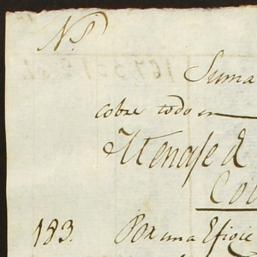 N.º
Suma
cobre todo en
Menage d
Co
183. Por una Efigie